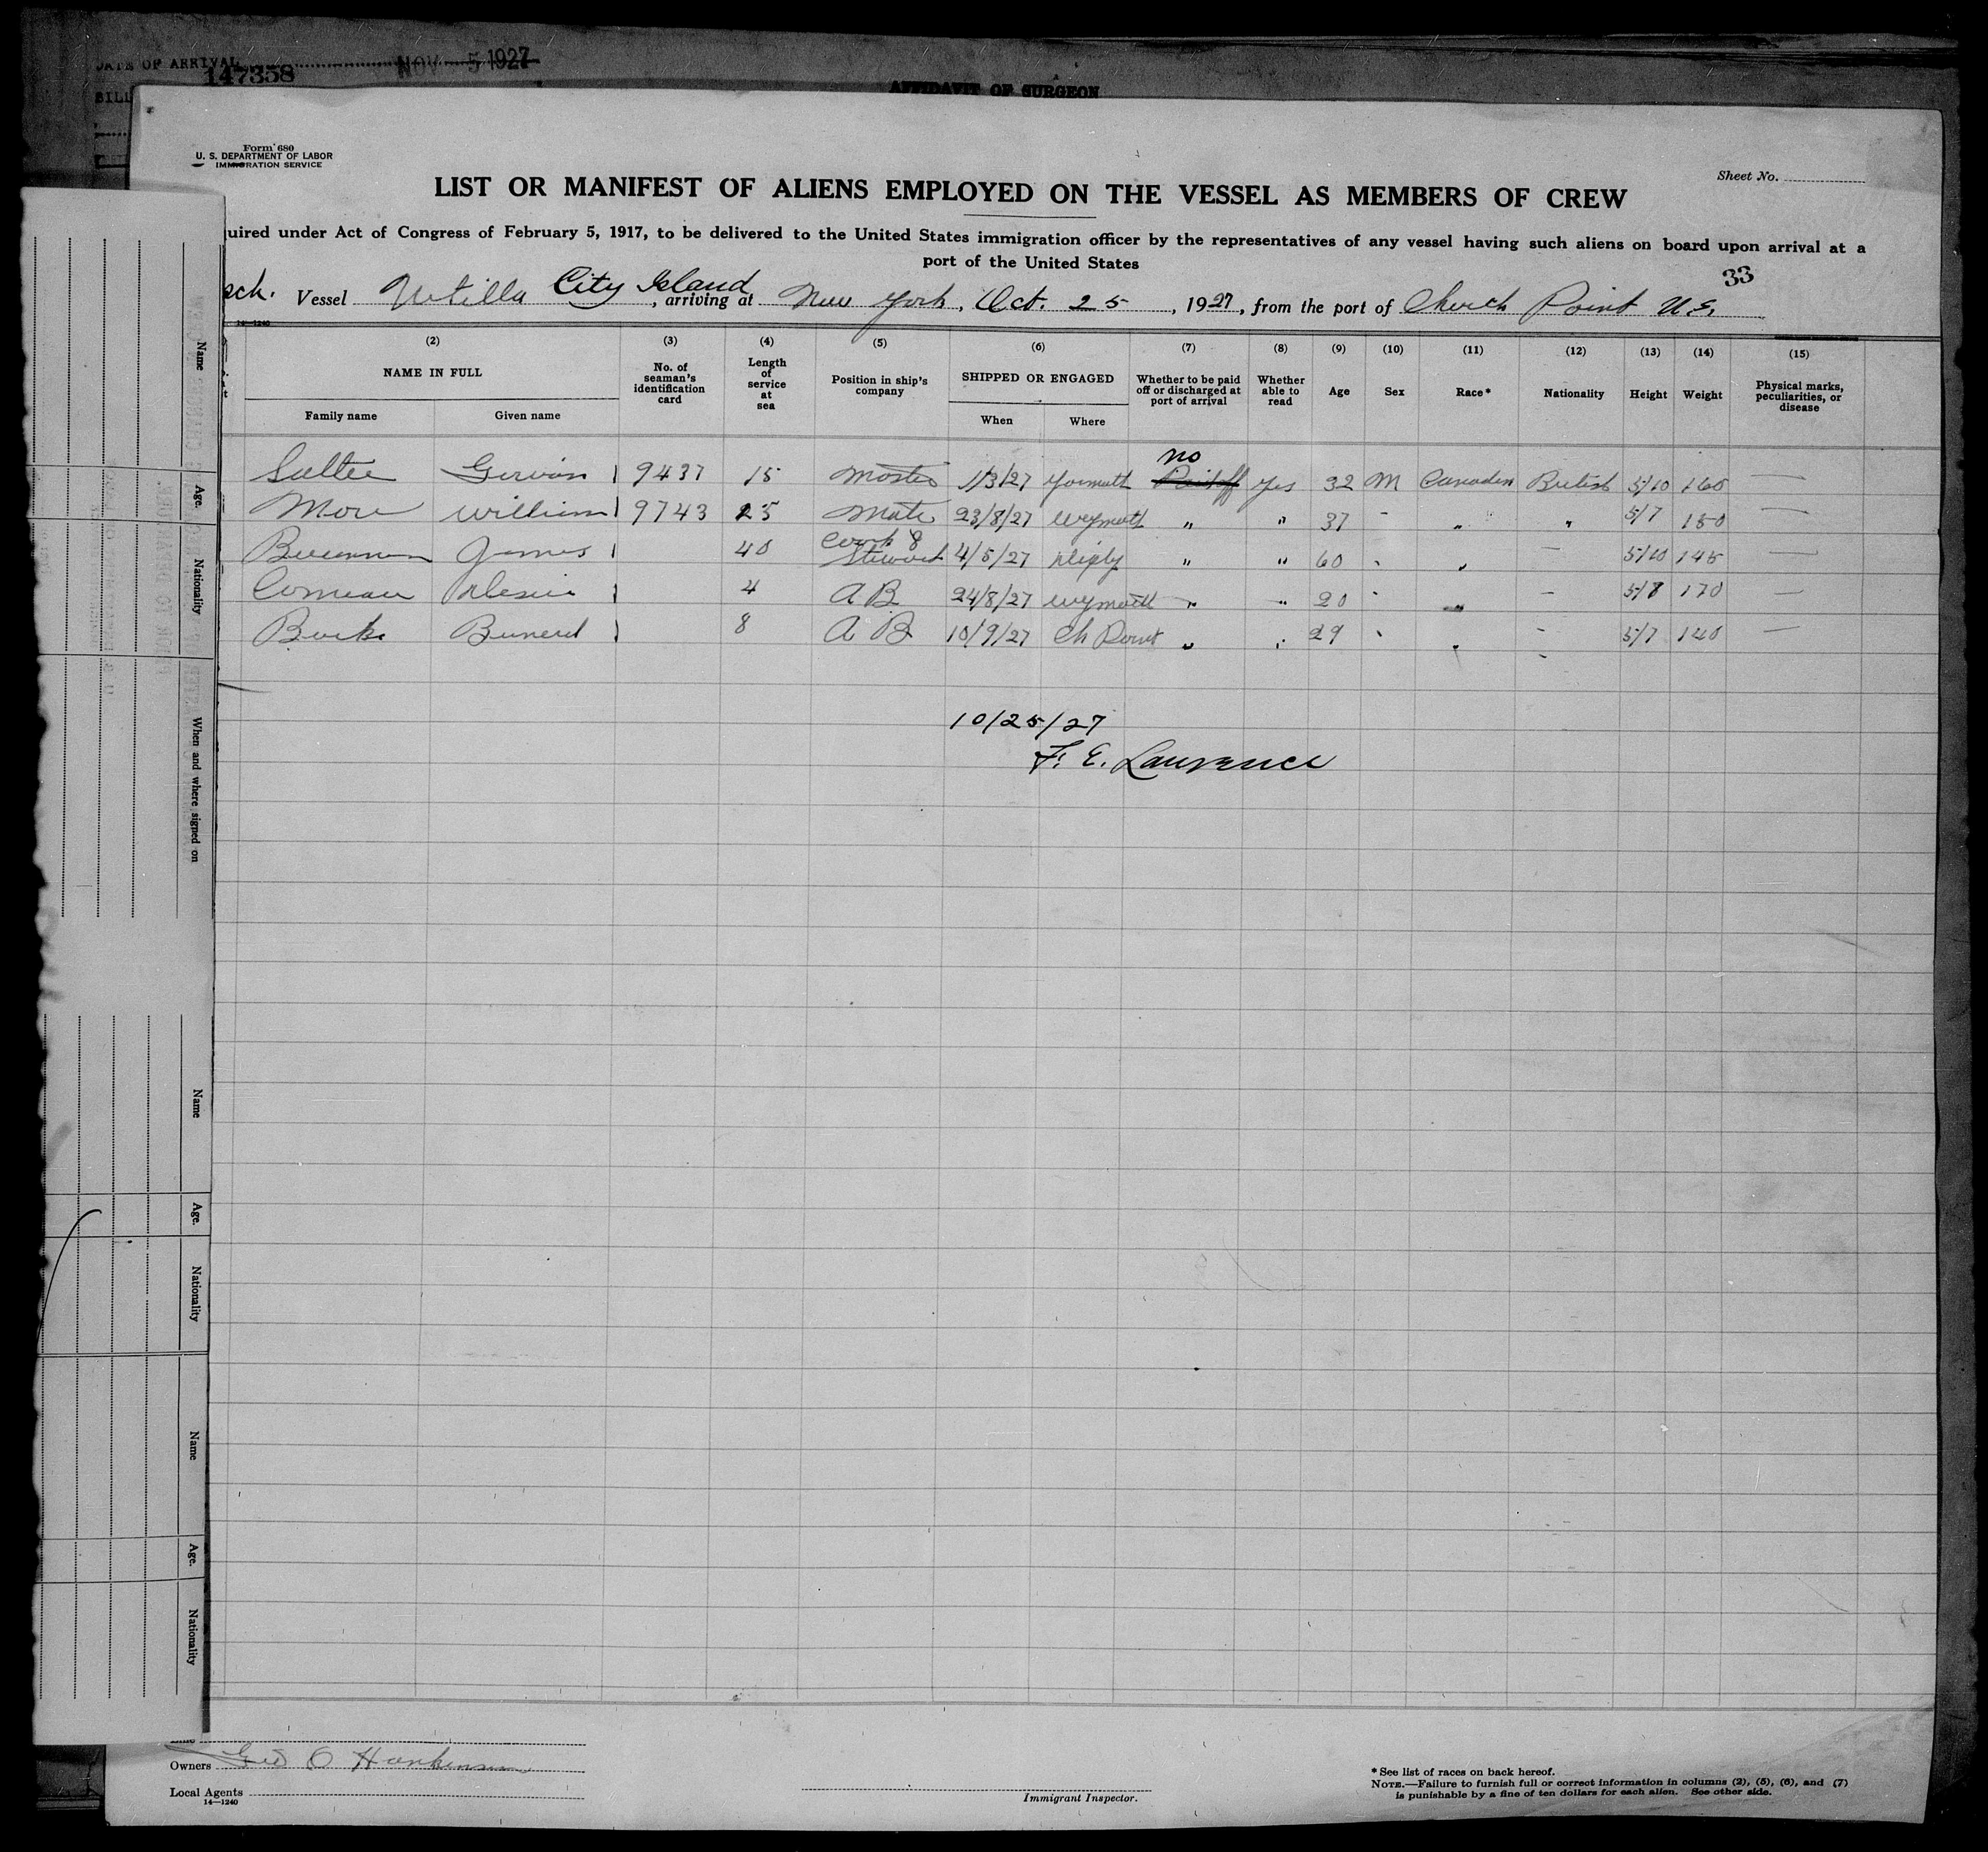 DATE OF ARRIVAL NOV 5 1927
147358
BILL
AFFIDAVIT OF SURGEON
Form 680
U. S. DEPARTMENT OF LABOR
IMMIGRATION SERVICE
Sheet No.
LIST OR MANIFEST OF ALIENS EMPLOYED ON THE VESSEL AS MEMBERS OF CREW
uired under Act of Congress of February 5, 1917, to be delivered to the United States immigration officer by the representatives of any vessel having such aliens on board upon arrival at a
port of the United States
33
sch. Vessel Utilla City Island, arriving at New York, Oct. 25, 1927, from the port of Church Point N.S.
14—1240
(2) (3) (4) (5) (6) (7) (8) (9) (10) (11) (12) (13) (14) (15)
NAME IN FULL
Family name Given name
No. of seaman's identification card
Length of service at sea
Position in ship's company
SHIPPED OR ENGAGED
When Where
Whether to be paid off or discharged at port of arrival
Whether able to read
Age
Sex
Race*
Nationality
Height
Weight
Physical marks, peculiarities, or disease
no
9437 15 Master 1/3/27 Yarmouth Paid off Yes 32 M Canadian British 5/10 160 —
More William 9743 25 Mate 23/8/27 Weymouth " " 37 - " " 5/7 150 —
James 40 Cook & Steward 4/5/27 Digby " " 60 - " — 5/10 145 —
Comeau 4 A B 24/8/27 Weymouth " " 20 - " - 5/8 170 —
Burke 8 A B 10/9/27 Ch Point " " 29 - " - 5/7 140 —
10/25/27
F. E. Lawrence
Name
Age.
Nationality
When and where signed on
Name
Age.
Nationality
Name
Age.
Nationality
Owners Geo O Hankinson
Local Agents
14—1240
Immigrant Inspector.
* See list of races on back hereof.
NOTE.—Failure to furnish full or correct information in columns (2), (5), (6), and (7)
is punishable by a fine of ten dollars for each alien. See other side.